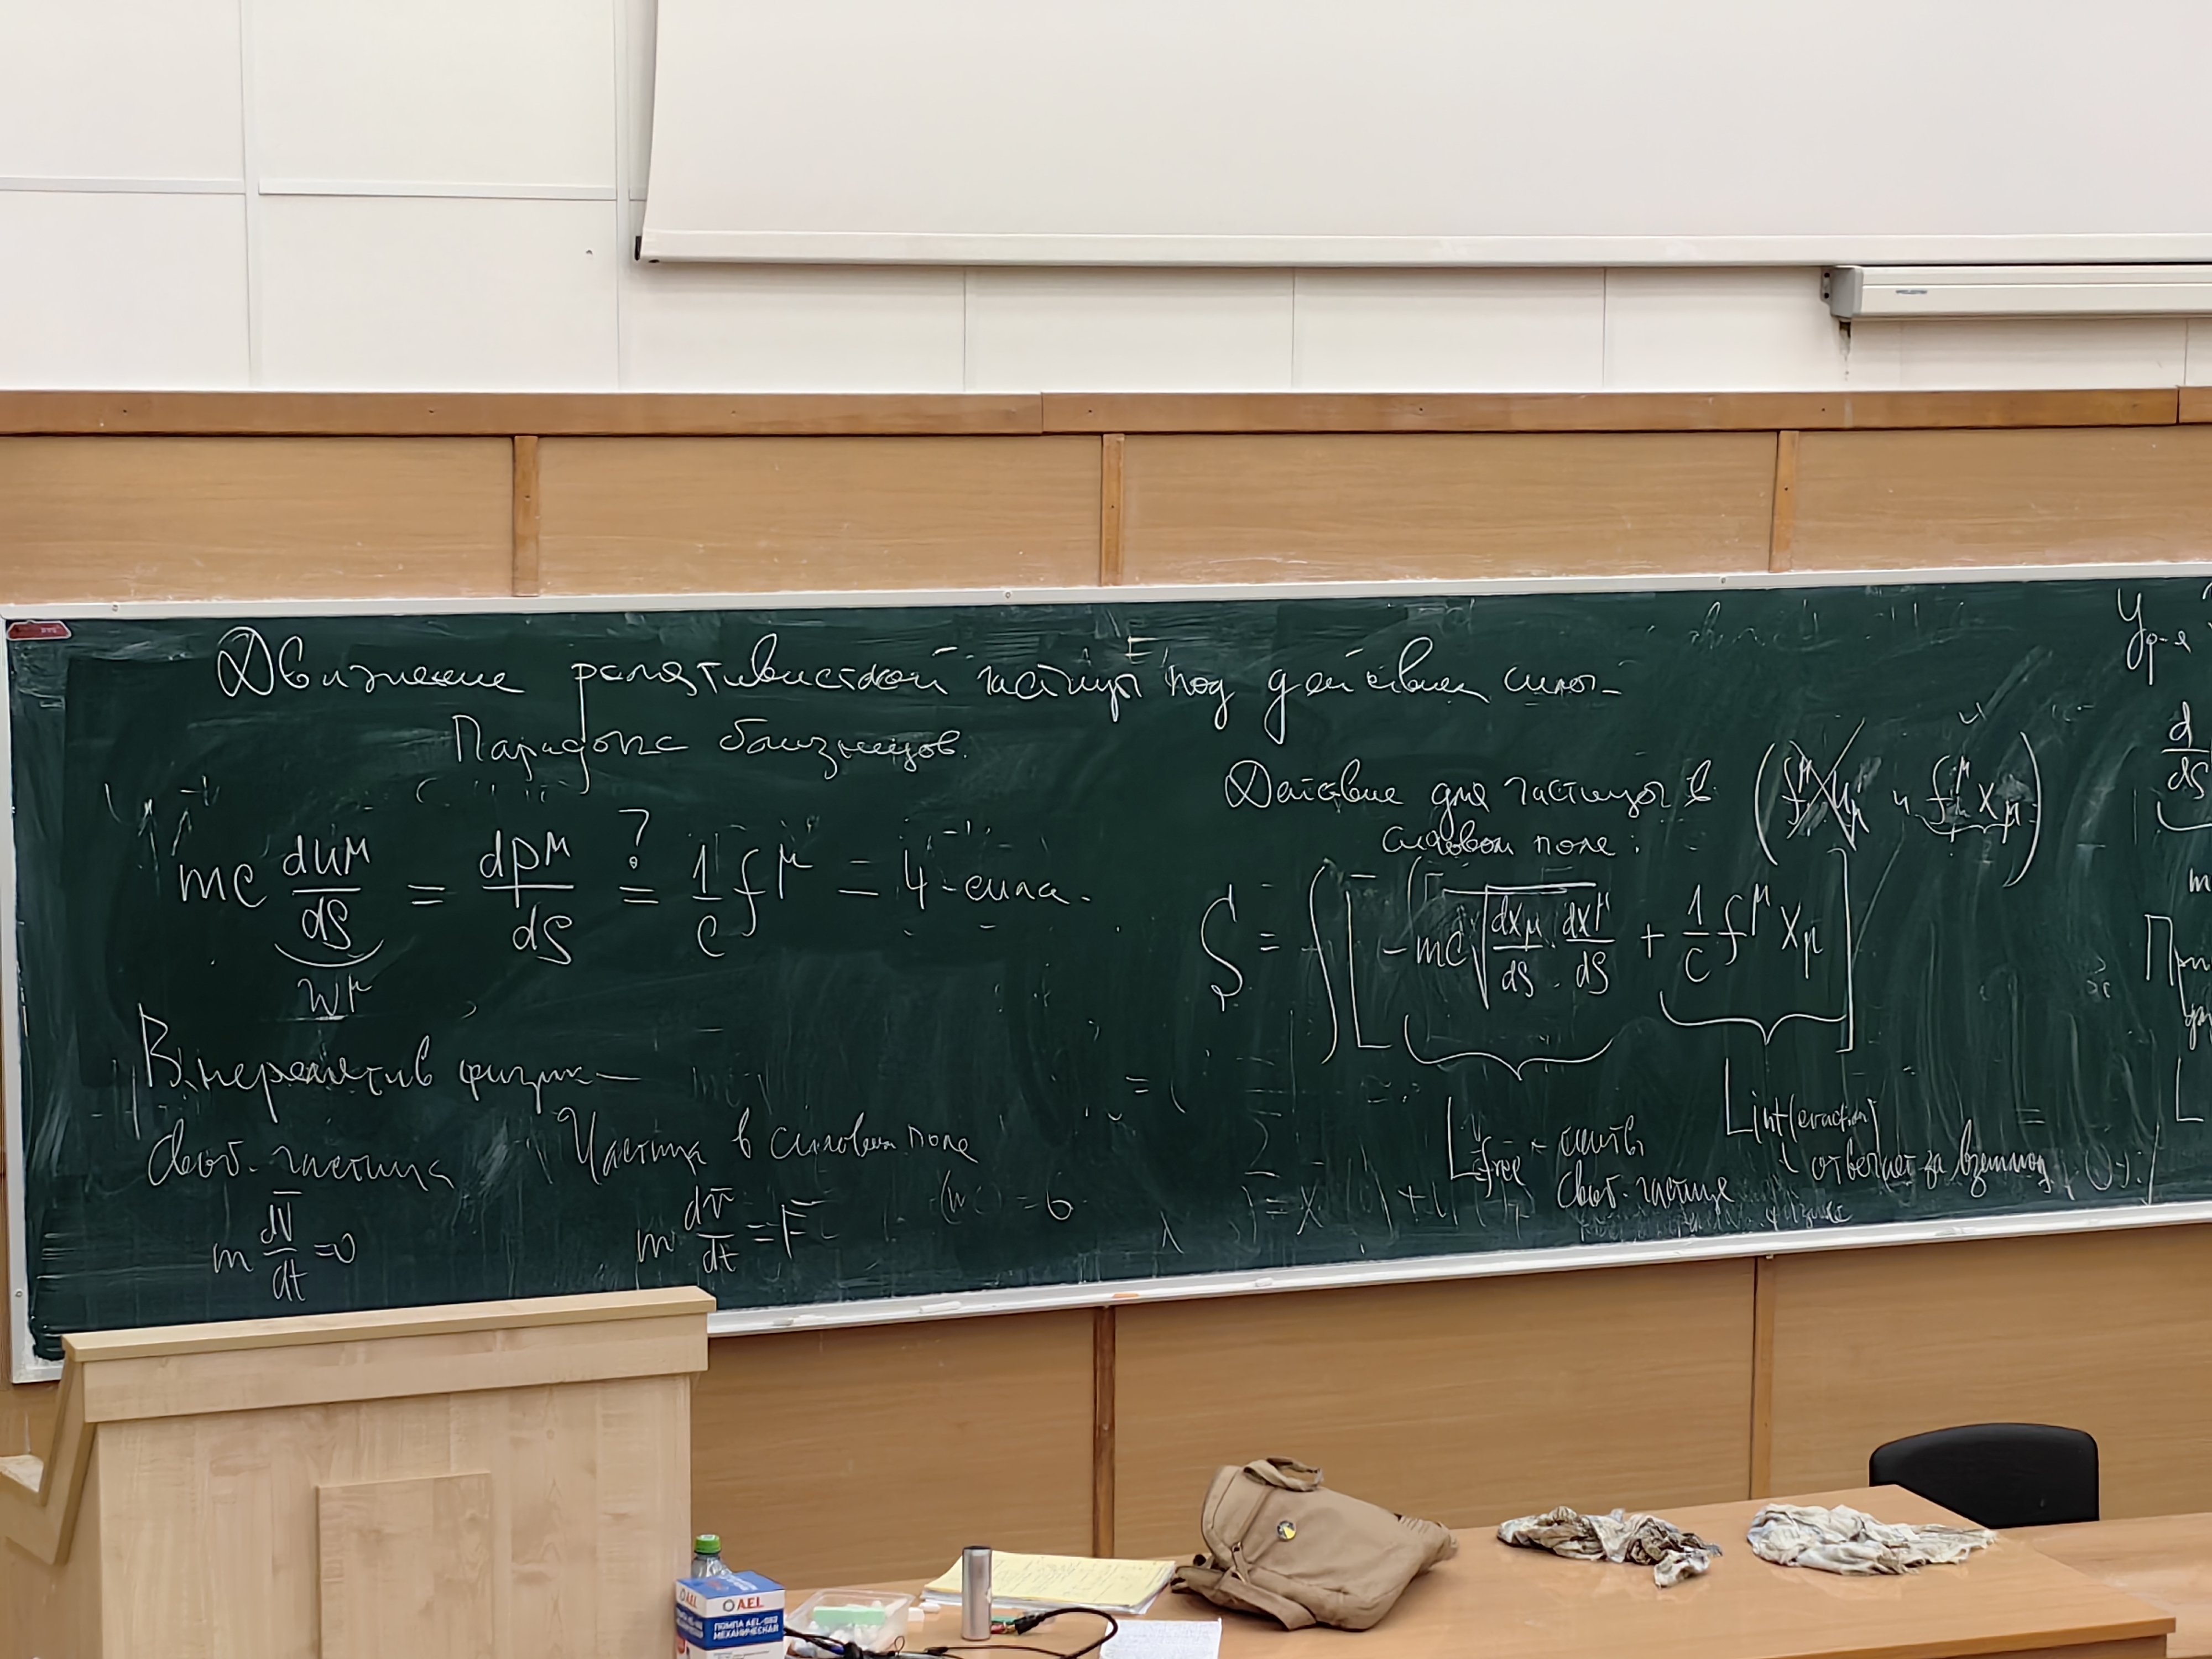 Движение релятивистской частицы под действием силы
Парадокс близнецов.
mc du^μ/ds = dp^μ/ds ?= 1/c f^μ = 4-сила.
w^μ
В нерелятив физике
Своб. частица
m dv̄/dt = 0
Частица в силовом поле
m dv̄/dt = F̄
Действие для частицы в
силовом поле:
( f^μ x_μ )
S = ∫[ -mc √(dx_μ/ds · dx^μ/ds) + 1/c f^μ x_μ ]
L_free
своб. частице
L_int(eraction)
отвечает за взаимод
Ур-я
d/ds
m
При
L
AEL
AEL
ПОМПА AEL
МЕХАНИЧЕСКАЯ